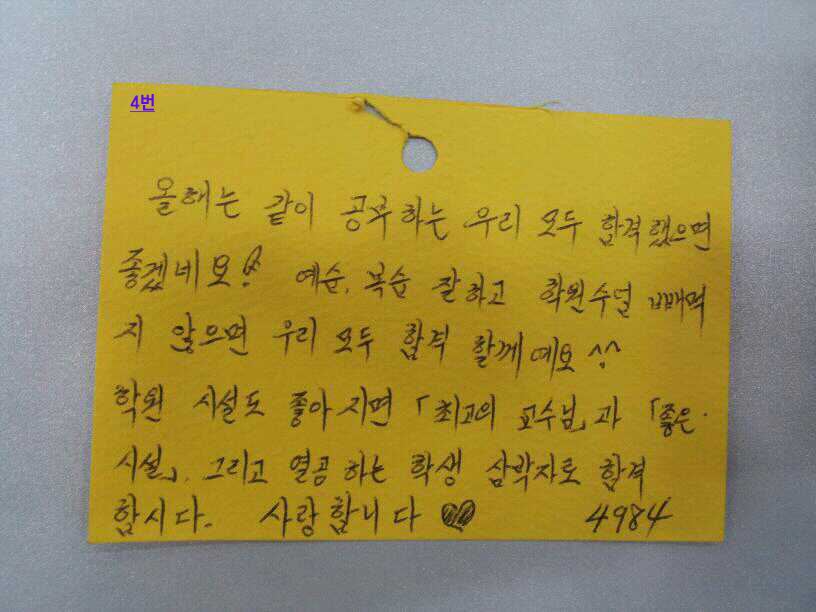 4번
올해는 같이 공부하는 우리 모두 합격했으면
좋겠네요!
예순, 복습 잘하고 학원수덜 빼먹
지 않으면 우리 모두 합격 할께예요 ^^
학원 시설도 좋아지면 「최고의 교수님」과 「좋은
시설」, 그리고 열공하는 학생 삼박자로 합격
합시다. 사랑합니다 ♥ 4984